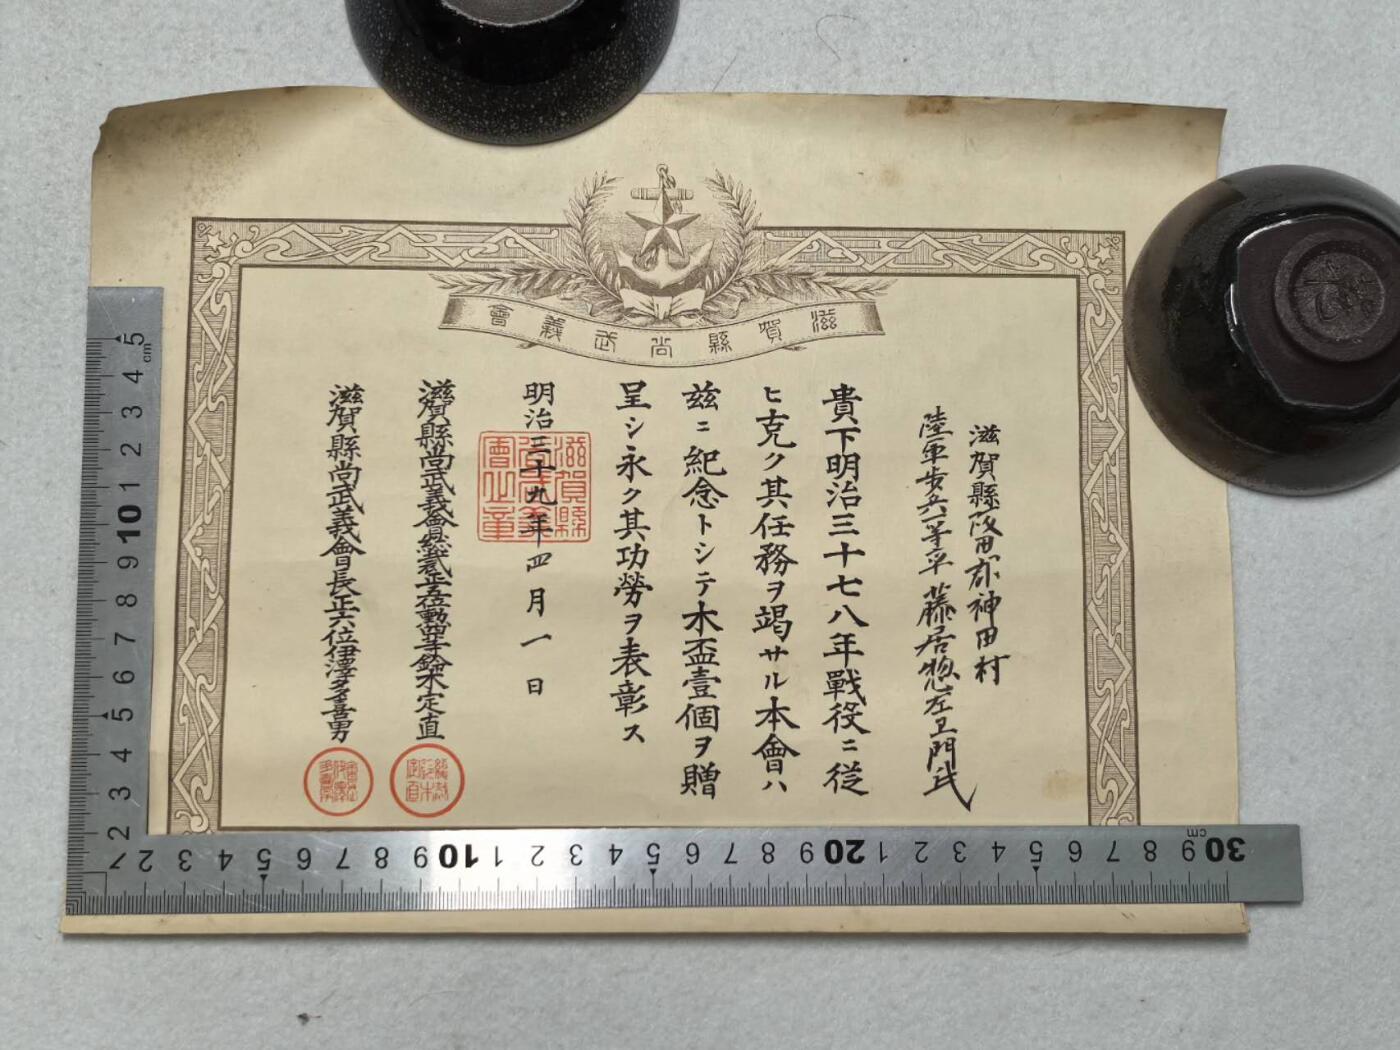 滋賀縣尚武義會
滋賀縣阪田郡神田村
陸軍歩兵一等卒 藤居惣左衛門氏
貴下明治三十七八年戰役ニ從
ヒ克ク其任務ヲ竭サル本會ハ
茲ニ紀念トシテ木盃壹個ヲ贈
呈シ永ク其功勞ヲ表彰ス
明治三十九年四月一日
滋賀縣尚武義會總裁正五位勳四等鈴木定直
滋賀縣尚武義會長正六位伊澤多喜男
滋賀縣
會之章
5 cm 4 3 2 1 10 9 8 7 6 5 4 3 2
1 2 3 4 5 6 7 8 9 10 1 2 3 4 5 6 7 8 9 20 1 2 3 4 5 6 7 8 9 30 cm